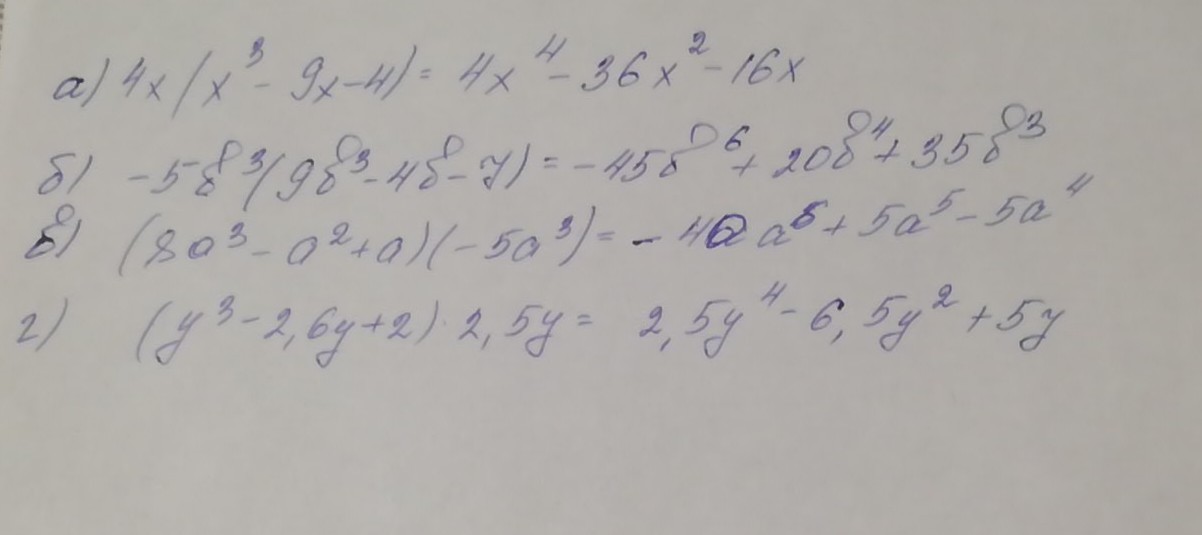 а) 4x(x³ - 9x - 4) = 4x⁴ - 36x² - 16x
б) -5b³(9b³ - 4b - 7) = -45b⁶ + 20b⁴ + 35b³
в) (8a³ - a² + a)(-5a³) = -40a⁶ + 5a⁵ - 5a⁴
г) (y³ - 2,6y + 2) · 2,5y = 2,5y⁴ - 6,5y² + 5y